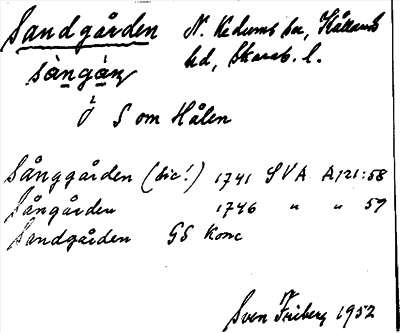 Sandgården N. Kedums sn, Kållands
sàngàn̥ hd, Skarab. l.
S om Hålen
Sånggården (sic!) 1741 SVA A121:58
Sångården 1746 " " 59
Sandgården GS Konc
Sven Friberg 1952